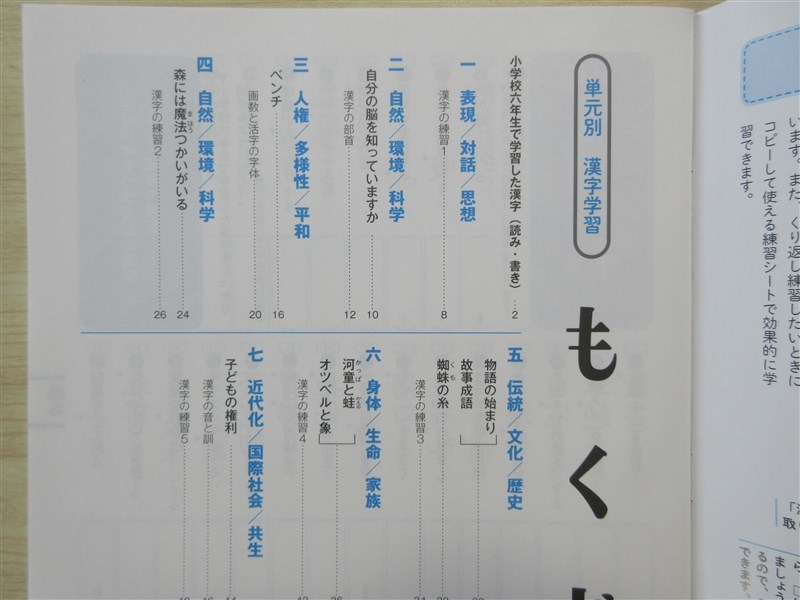 います。また、くり返し練習したいときに
コピーして使える練習シートで効果的に学
習できます。
もく
単元別 漢字学習
小学校六年生で学習した漢字（読み・書き）…2
一 表現／対話／思想
漢字の練習1……8
二 自然／環境／科学
自分の脳を知っていますか……10
漢字の部首……12
三 人権／多様性／平和
ベンチ……16
画数と活字の字体……20
四 自然／環境／科学
森には魔法つかいがいる……24
まほう
漢字の練習2……26
五 伝統／文化／歴史
物語の始まり
故事成語
蜘蛛の糸
くも
漢字の練習3
六 身体／生命／家族
河童と蛙
かっぱ かえる
オツベルと象
漢字の練習4
七 近代化／国際社会／共生
子どもの権利
漢字の音と訓
漢字の練習5